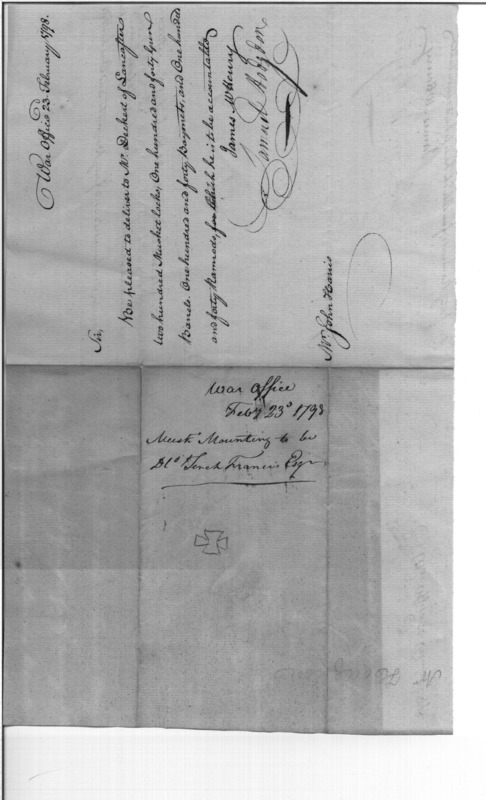 War Office 23. February 1798.
Sir,
Be pleased to deliver to Mr. Decherd of Lancaster
two hundred Musket locks, One hundred and forty Gun
Barrels. One hundred and forty Bayonets, and One hundred
and forty Ramrods, for which he is to be accountable
James McHenry
Samuel Hodgdon
Mr John Harris
War Office
Feby 23d 1798
Musk Mounting to be
Tench Francis Esqr